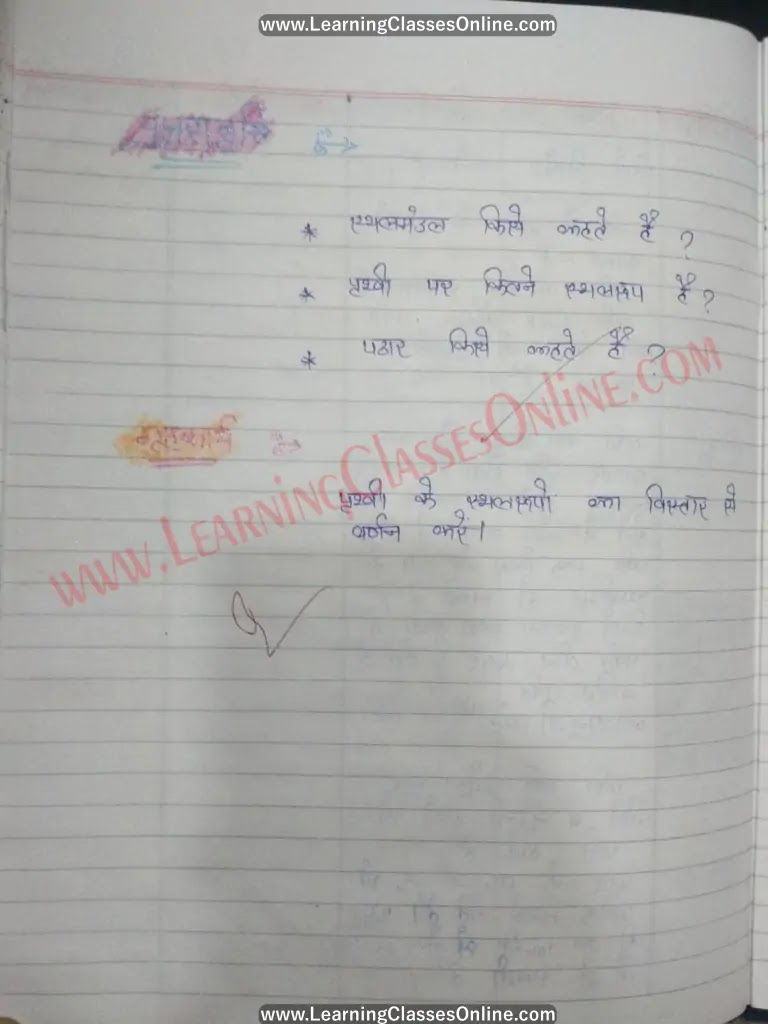 www.LearningClassesOnline.com
* स्थलमंडल किसे कहते हैं ?
* पृथ्वी पर कितने स्थलरूप हैं ?
* पठार किसे कहते हैं ?
गृहकार्य
पृथ्वी के स्थलरूपो का विस्तार से
वर्णन करें।
www.LearningClassesOnline.com
www.LearningClassesOnline.com